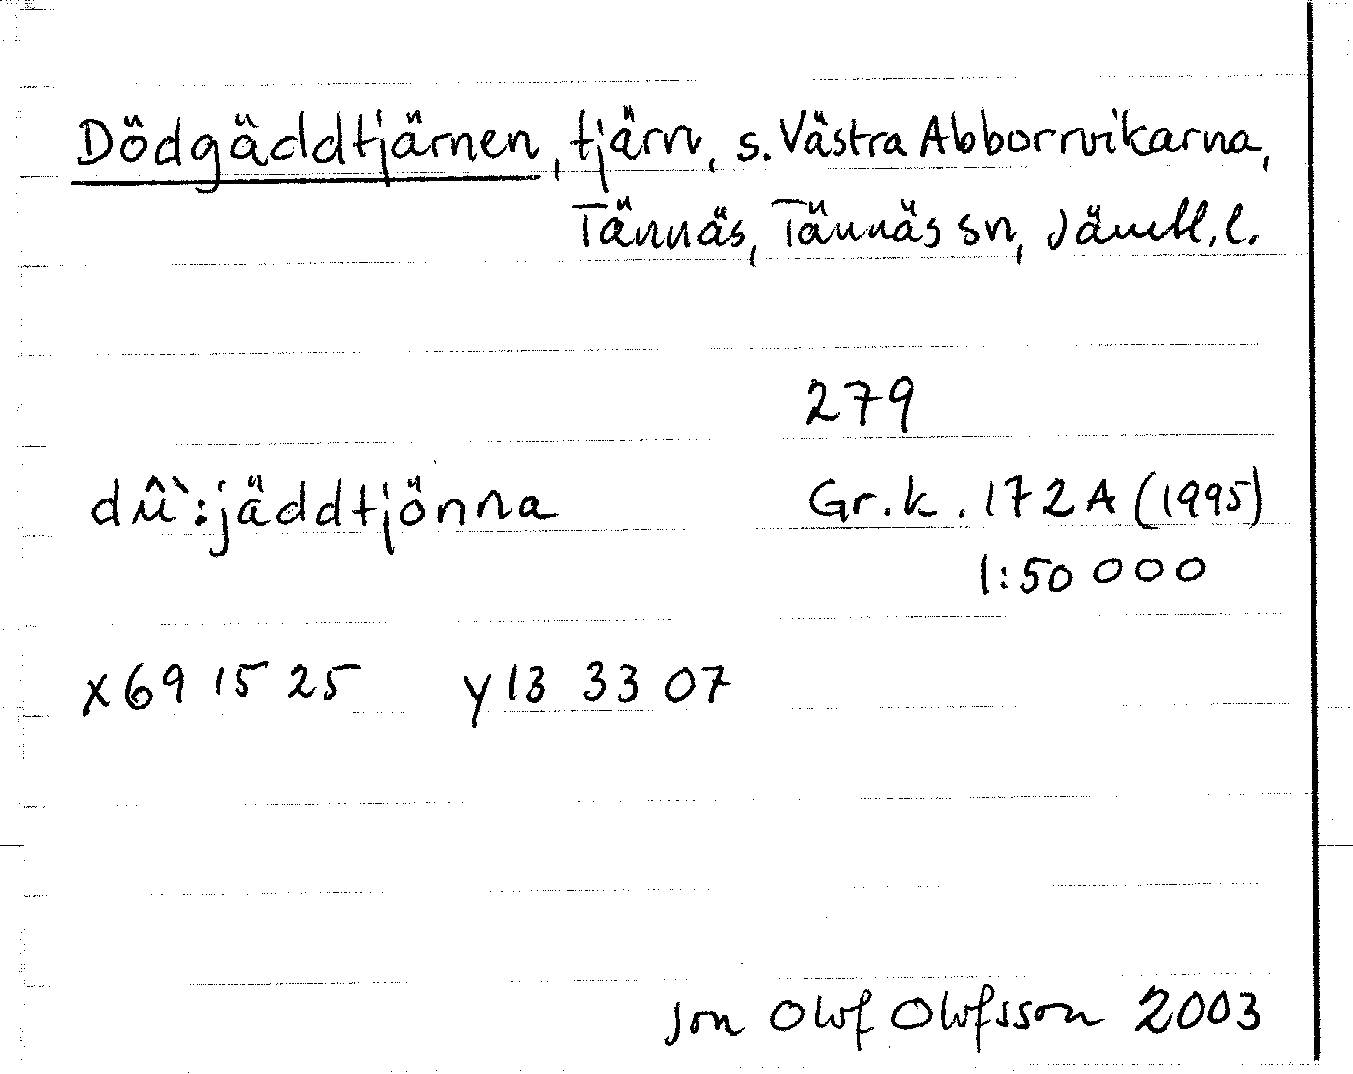 Dödgäddtjärnen, tjärn, s. Västra Abborrvikarna,
Tännäs, Tännäs sn, Jämtl. l.
279
dû`:jäddtjönna
Gr.k. 172A (1995)
1:50 000
x69 15 25 y13 33 07
Jon Olof Olofsson 2003